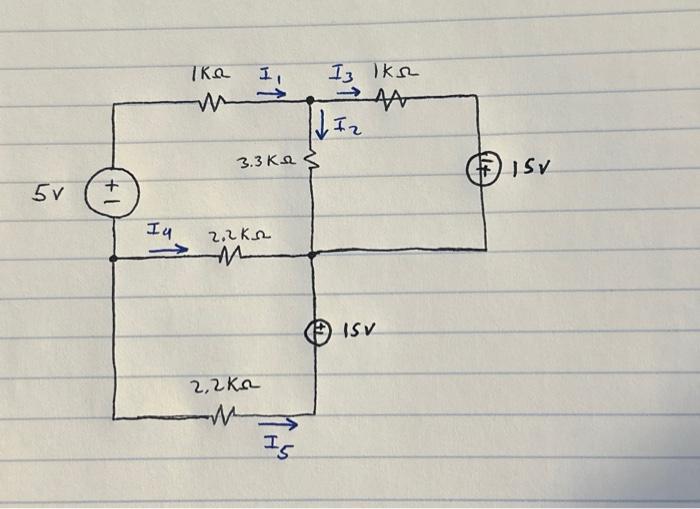 1KΩ I1 I3 1KΩ
I2
3.3KΩ
+
-
5V
-
+
15V
I4 2.2KΩ
+
-
15V
2.2KΩ
I5